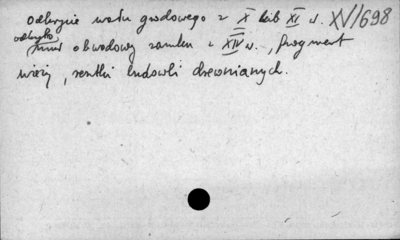 Odkrycie wału grodowego z X lub XI w. XV/698
odkryto mur obwodowy zamku z XIV w., fragment
wieży, resztki budowli drewnianych.